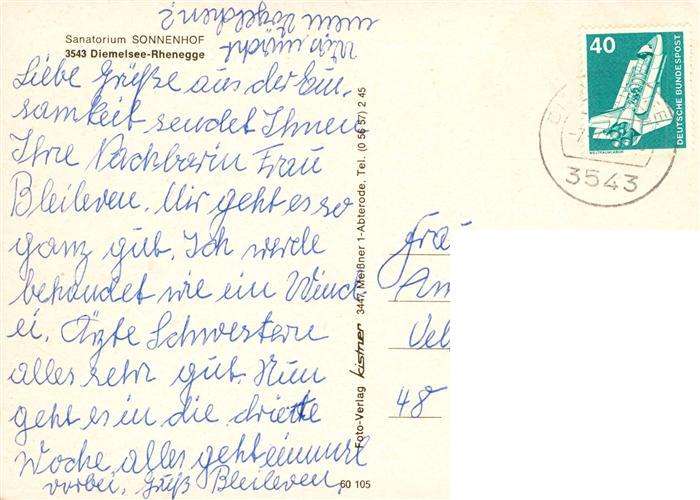 Sanatorium SONNENHOF
3543 Diemelsee-Rhenegge
Liebe Grüße aus der Ein-
samkeit sendet Ihnen
Ihre Nachbarin Frau
Bleileven. Mir geht es so
ganz gut. Ich werde
behandet wie ein Winds
ei. Ärzte Schwestern
alles sehr gut. Nun
geht es in die dritte
Woche, alles geht einmal
vorbei. Gruß Bleileven,
Was macht
mein Vögelchen?
Foto-Verlag kistner 3447 Meißner 1-Abterode, Tel. (0 56 57) 2 45
60 105
40
DEUTSCHE BUNDESPOST
WELTRAUMLABOR
3543
Frau
Am
Vel
48